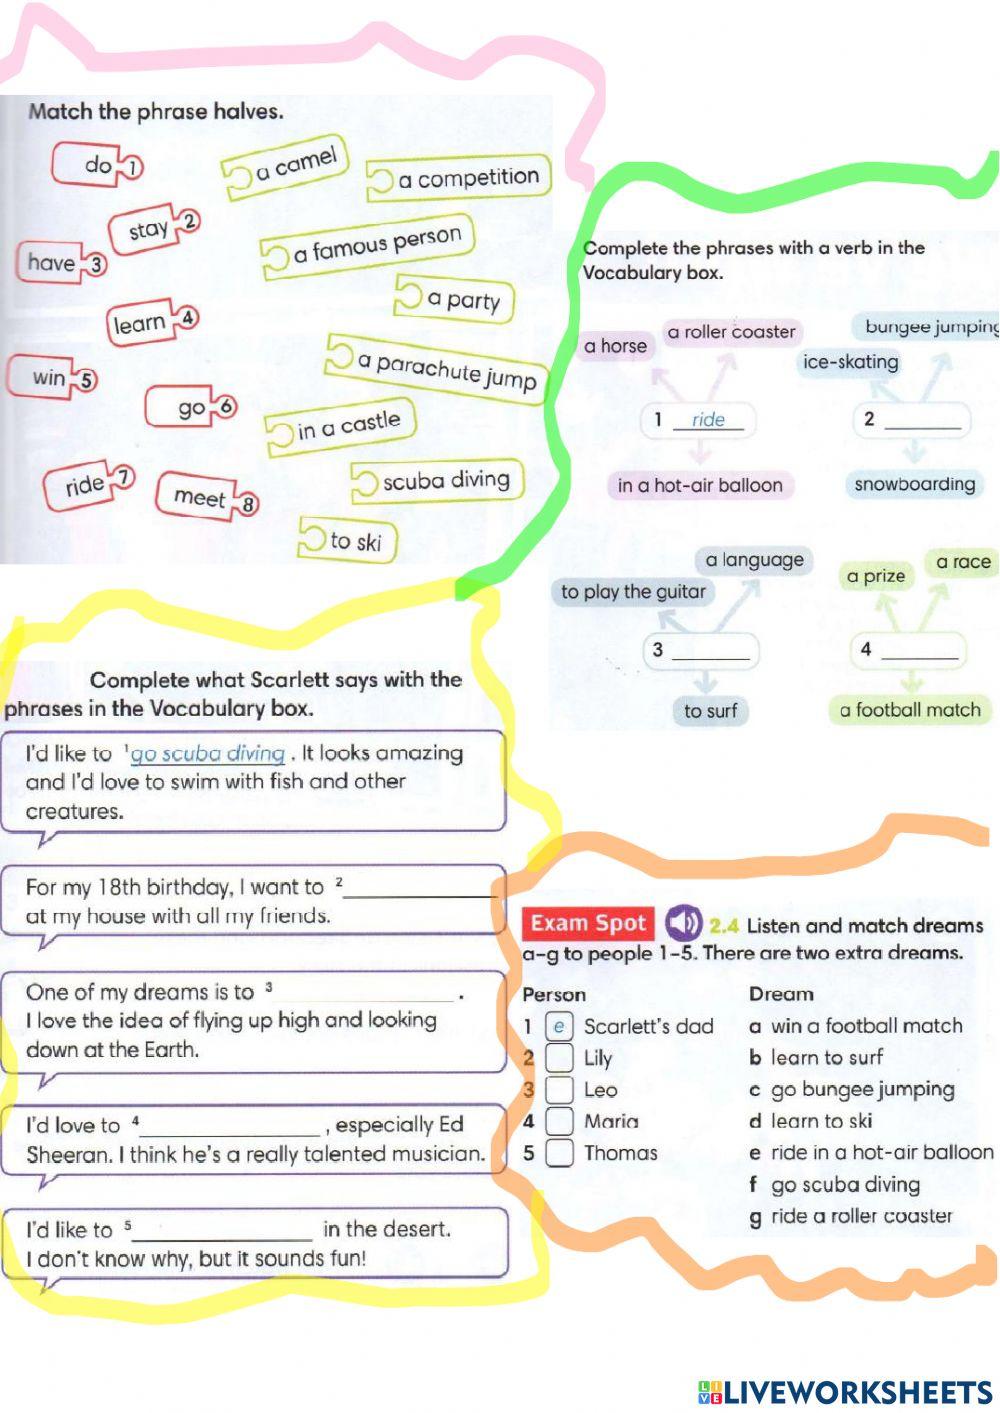 Match the phrase halves.
do 1
a camel
a competition
stay 2
have 3
a famous person
a party
learn 4
win 5
a parachute jump
go 6
in a castle
ride 7
meet 8
scuba diving
to ski
Complete the phrases with a verb in the
Vocabulary box.
a horse
a roller coaster
1 ride
in a hot-air balloon
bungee jumping
ice-skating
2 ________
snowboarding
a language
to play the guitar
3 ________
to surf
a prize
a race
4 ________
a football match
Complete what Scarlett says with the
phrases in the Vocabulary box.
I'd like to ¹go scuba diving. It looks amazing
and I'd love to swim with fish and other
creatures.
For my 18th birthday, I want to ² ________
at my house with all my friends.
One of my dreams is to ³ ________ .
I love the idea of flying up high and looking
down at the Earth.
I'd love to ⁴ ________ , especially Ed
Sheeran. I think he's a really talented musician.
I'd like to ⁵ ________ in the desert.
I don't know why, but it sounds fun!
Exam Spot 2.4 Listen and match dreams
a–g to people 1–5. There are two extra dreams.
Person Dream
1 e Scarlett's dad a win a football match
2 Lily b learn to surf
3 Leo c go bungee jumping
4 Maria d learn to ski
5 Thomas e ride in a hot-air balloon
f go scuba diving
g ride a roller coaster
LIVE LIVEWORKSHEETS